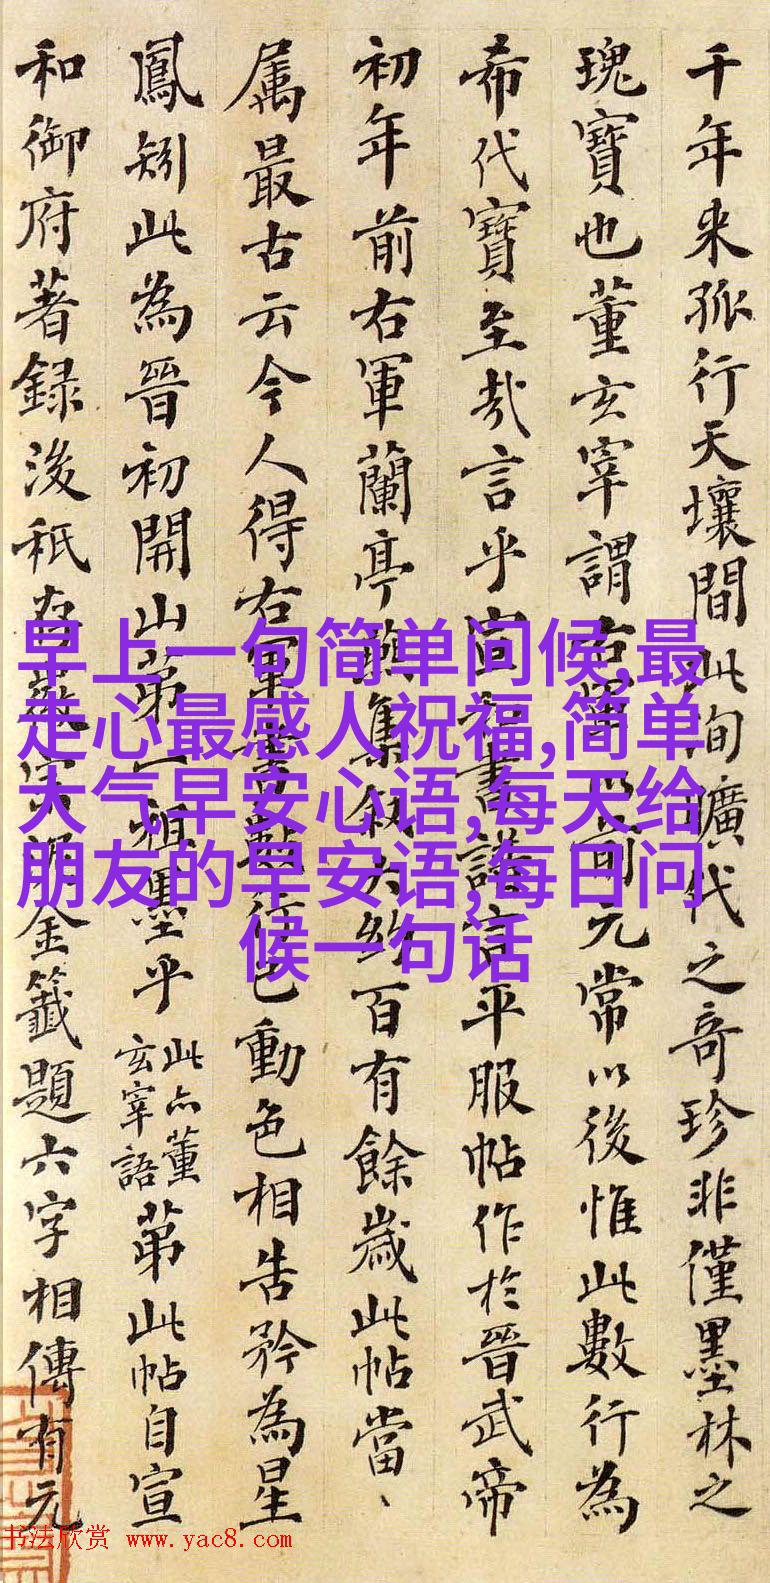 千年来孤行天壤間此洵曠代之奇珍非僅墨林之
瑰寶也董玄宰謂右軍以前元常以後惟此數行為
希代寶至哉言乎宣和書譜言平服帖作於晉武帝
初年前右軍蘭亭讌集敘大約百有餘歲此帖當、
属最古云今人得右軍書數行已動色相告矜為星
鳳矧此為晉初開山第一祖墨乎此亦董玄宰語第此帖自宣
和御府著録後秖泥金籤題六字相傳有元
早上一句简单问候,最
走心最感人祝福,简单
大气早安心语,每天给
朋友的早安语,每日问
候一句话
书法欣赏 www.yac8.com